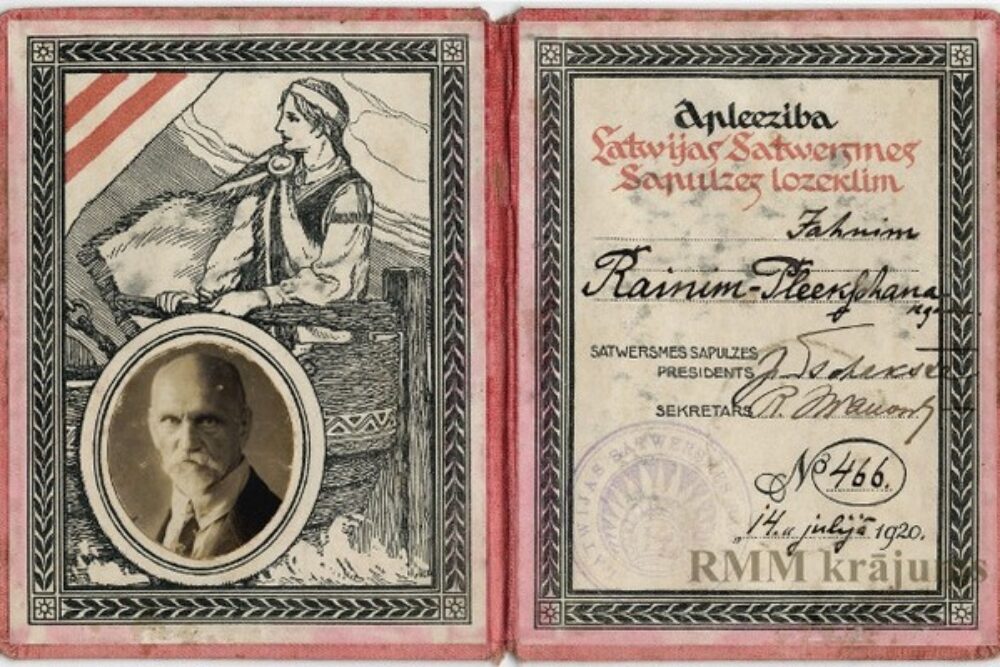 Apleeziba
Latwijas Satwersmes
Sapulzes lozeklim
Jahnim
Rainim-Pleekschana
kgam
SATWERSMES SAPULZES
PRESIDENTS J. Tschakste
SEKRETARS R. Iwanow
LATWIJAS SATWERSMES
№ 466.
"14." julijā 1920.
RMM krājums